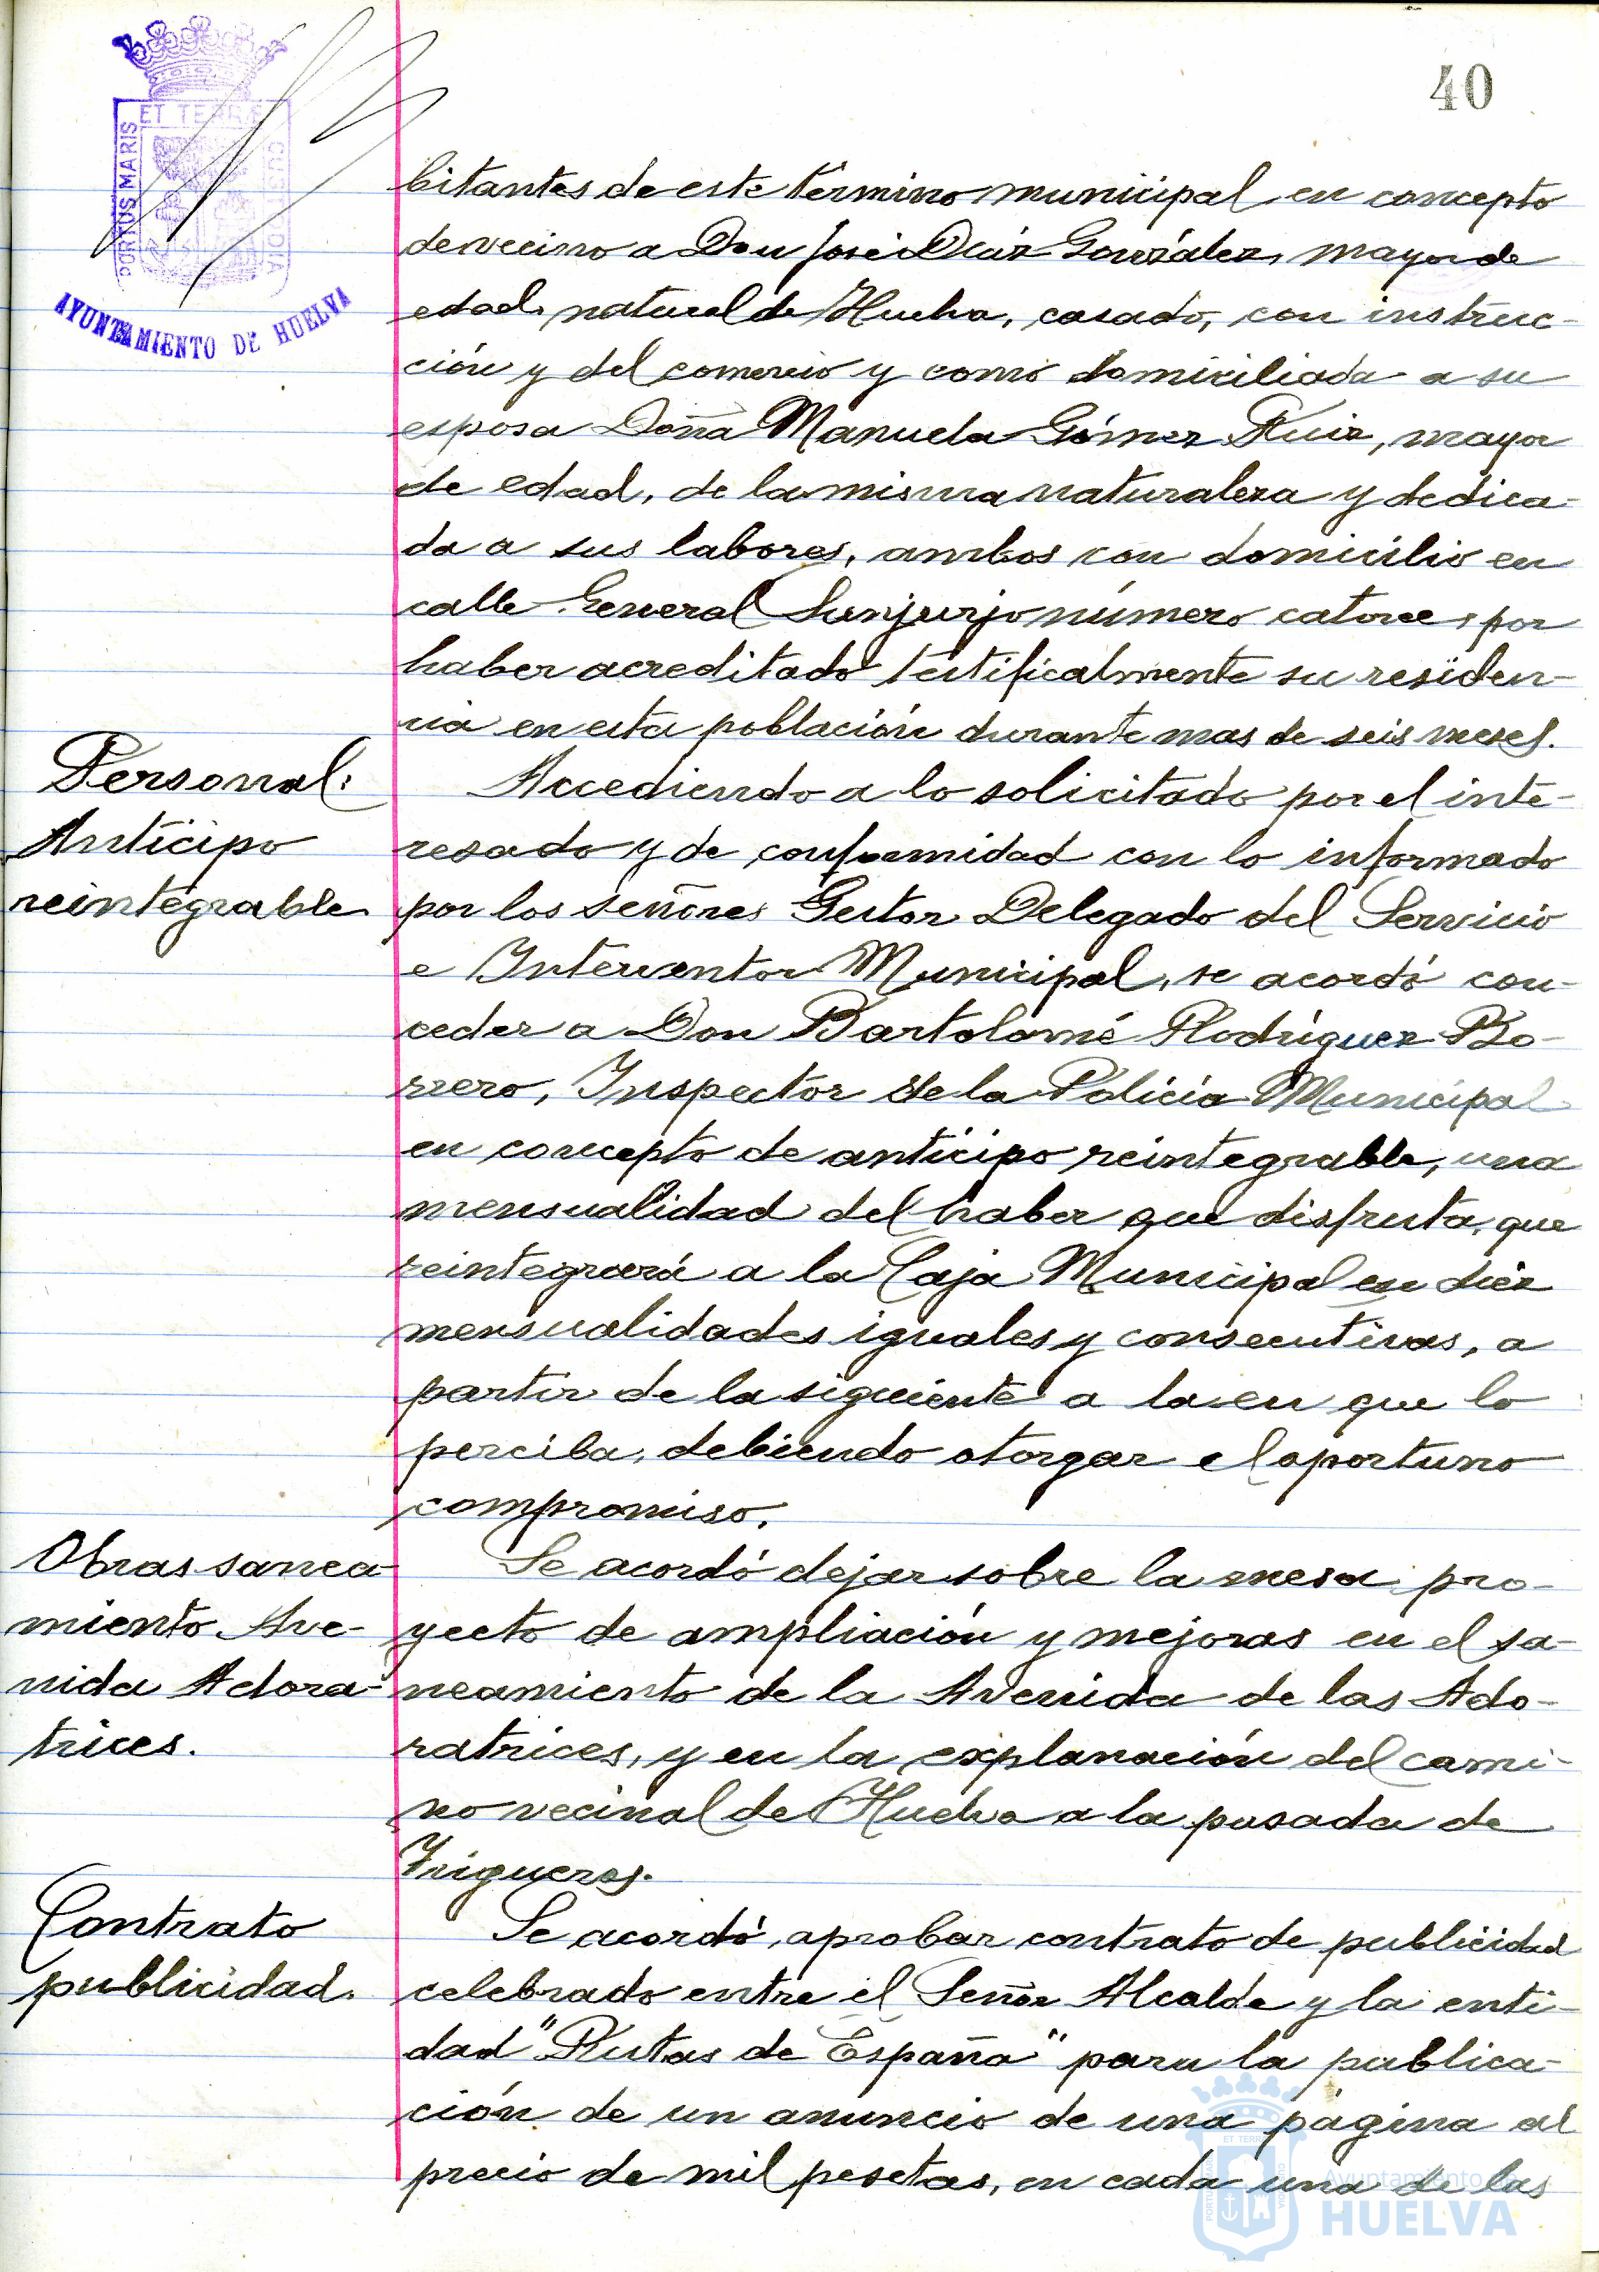 40
ET TERRÆ
PORTUS MARIS
CUSTODIA
AYUNTAMIENTO DE HUELVA
bitantes de este termino municipal en concepto
de vecino a Don José Diaz González, mayor de
edad, natural de Huelva, casado, con instruc-
ción y del comercio y como domiciliada a su
esposa Doña Manuela Gómez Ruiz, mayor
de edad, de la misma naturaleza y dedica-
da a sus labores, ambos con domicilio en
calle General Sanjurjo número catorce, por
haber acreditado testificalmente su residen-
cia en esta población durante mas de seis meses.
Personal:
Anticipo
reintegrable.
Accediendo a lo solicitado por el inte-
resado y de conformidad con lo informado
por los señores Gestor Delegado del Servicio
e Interventor Municipal, se acordó con-
ceder a Don Bartolomé Rodríguez Bo-
rrero, Inspector de la Policía Municipal
en concepto de anticipo reintegrable, una
mensualidad del haber que disfruta, que
reintegrará a la Caja Municipal en diez
mensualidades iguales y consecutivas, a
partir de la siguiente a la en que lo
perciba, debiendo otorgar el oportuno
compromiso.
Obras sanea-
miento Ave-
nida Adora-
trices.
Se acordó dejar sobre la mesa pro-
yecto de ampliación y mejoras en el sa-
neamiento de la Avenida de las Ado-
ratrices, y en la explanación del cami-
no vecinal de Huelva a la pasada de
Trigueros.
Contrato
publicidad.
Se acordó, aprobar contrato de publicidad
celebrado entre el Señor Alcalde y la enti-
dad "Rutas de España" para la publica-
ción de un anuncio de una página al
precio de mil pesetas, en cada una de las
Ayuntamiento de
HUELVA